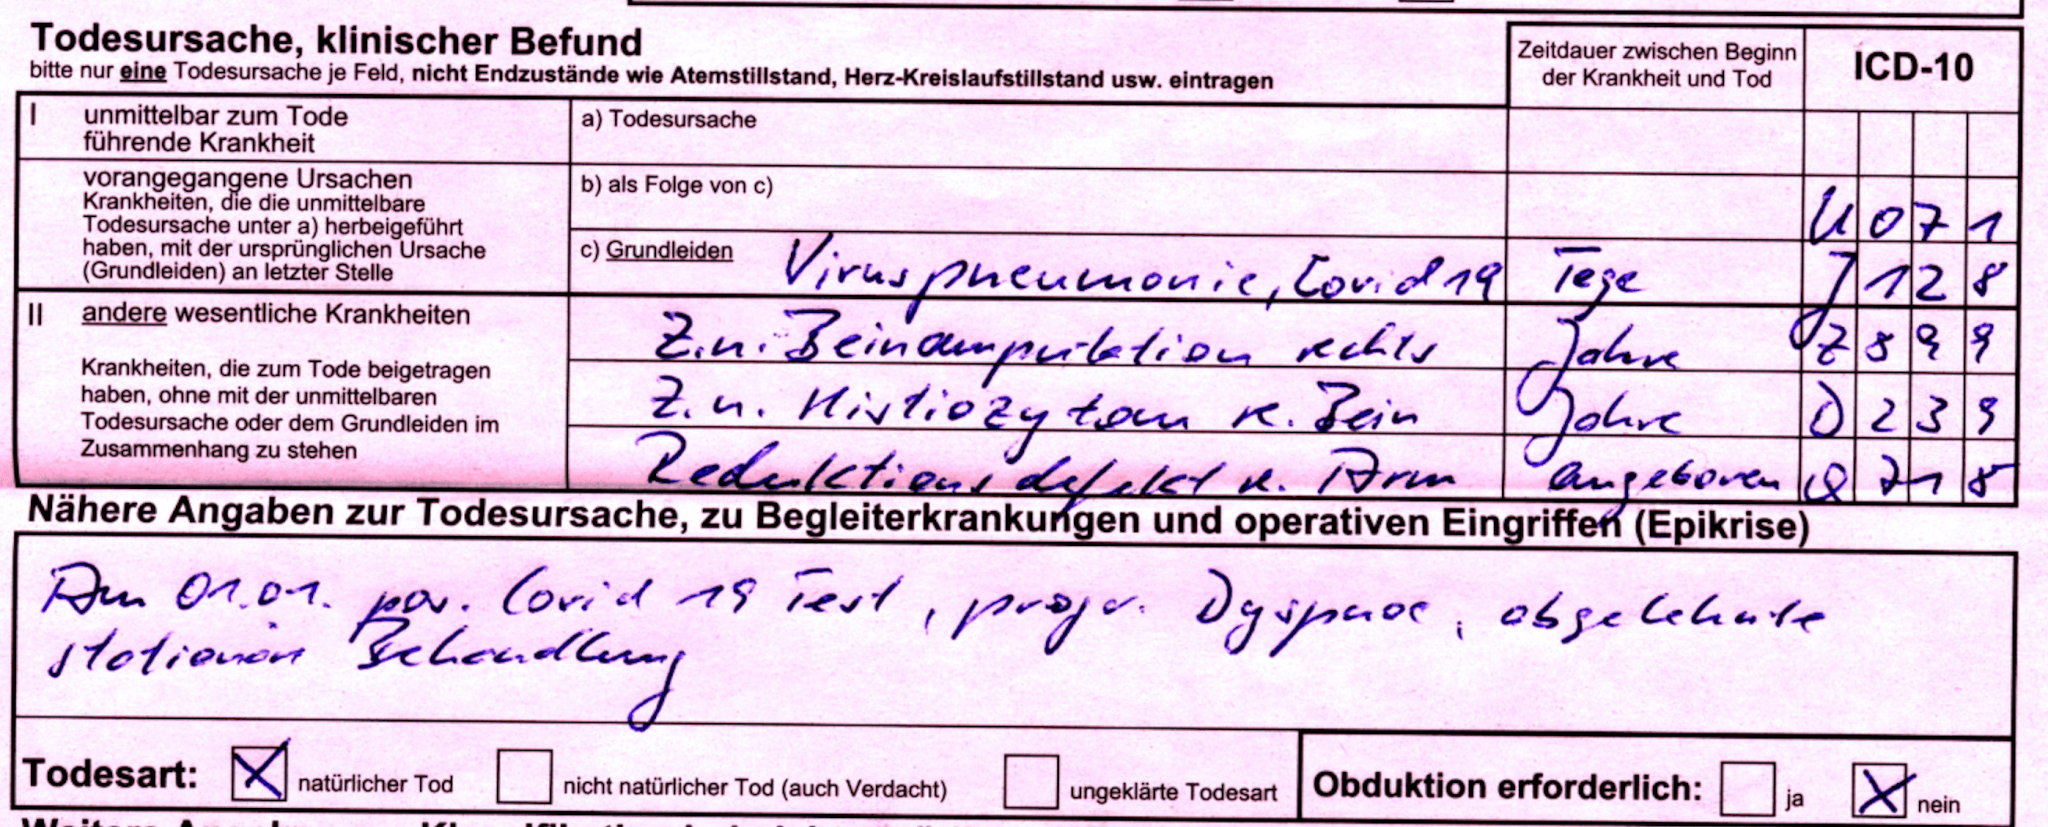 Todesursache, klinischer Befund
bitte nur eine Todesursache je Feld, nicht Endzustände wie Atemstillstand, Herz-Kreislaufstillstand usw. eintragen
Zeitdauer zwischen Beginn
der Krankheit und Tod
ICD-10
I unmittelbar zum Tode
führende Krankheit
a) Todesursache
vorangegangene Ursachen
Krankheiten, die die unmittelbare
Todesursache unter a) herbeigeführt
haben, mit der ursprünglichen Ursache
(Grundleiden) an letzter Stelle
b) als Folge von c)
U 0 7 1
c) Grundleiden Viruspneumonie, Covid 19 Tage J 1 2 8
II andere wesentliche Krankheiten
Krankheiten, die zum Tode beigetragen
haben, ohne mit der unmittelbaren
Todesursache oder dem Grundleiden im
Zusammenhang zu stehen
Z.n. Beinamputation rechts Jahre Z 8 9 9
Z.n. Histiozytom re. Bein Jahre D 2 3 9
Reduktionsdefekt re. Arm angeboren Q 7 1 8
Nähere Angaben zur Todesursache, zu Begleiterkrankungen und operativen Eingriffen (Epikrise)
Am 01.01. pos. Covid 19 Test, progr. Dyspnoe, abgelehnte
stationäre Behandlung
Todesart: natürlicher Tod nicht natürlicher Tod (auch Verdacht) ungeklärte Todesart Obduktion erforderlich: ja nein